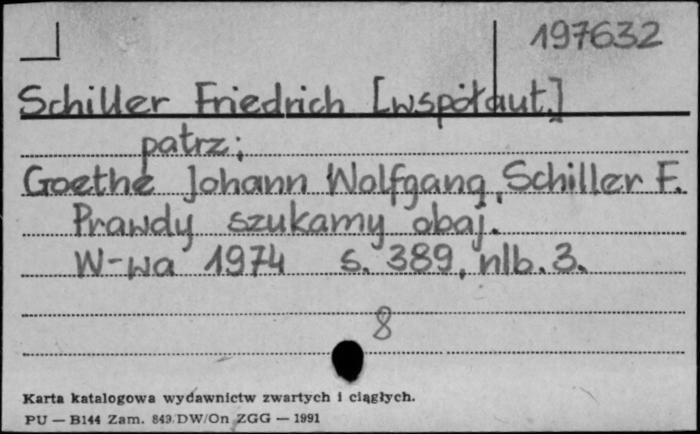 197632
Schiller Friedrich [współaut.]
patrz:
Goethe Johann Wolfgang, Schiller F.
Prawdy szukamy obaj.
W-wa 1974 s. 389, nlb. 3.
8
Karta katalogowa wydawnictw zwartych i ciągłych.
PU — B144 Zam. 849/DW/On ZGG — 1991